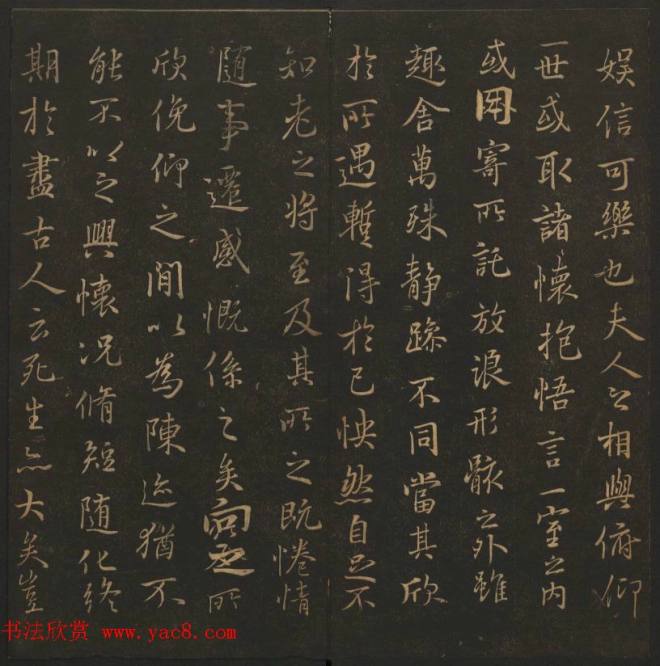 娛信可樂也夫人之相與俯仰
一世或取諸懷抱悟言一室之內
或因寄所託放浪形骸之外雖
趣舍萬殊靜躁不同當其欣
於所遇暫得於己怏然自足不
知老之將至及其所之既惓情
隨事遷感慨係之矣向之所
欣俛仰之間以為陳迹猶不
能不以之興懷況脩短隨化終
期於盡古人云死生亦大矣豈
书法欣赏 www.yac8.com